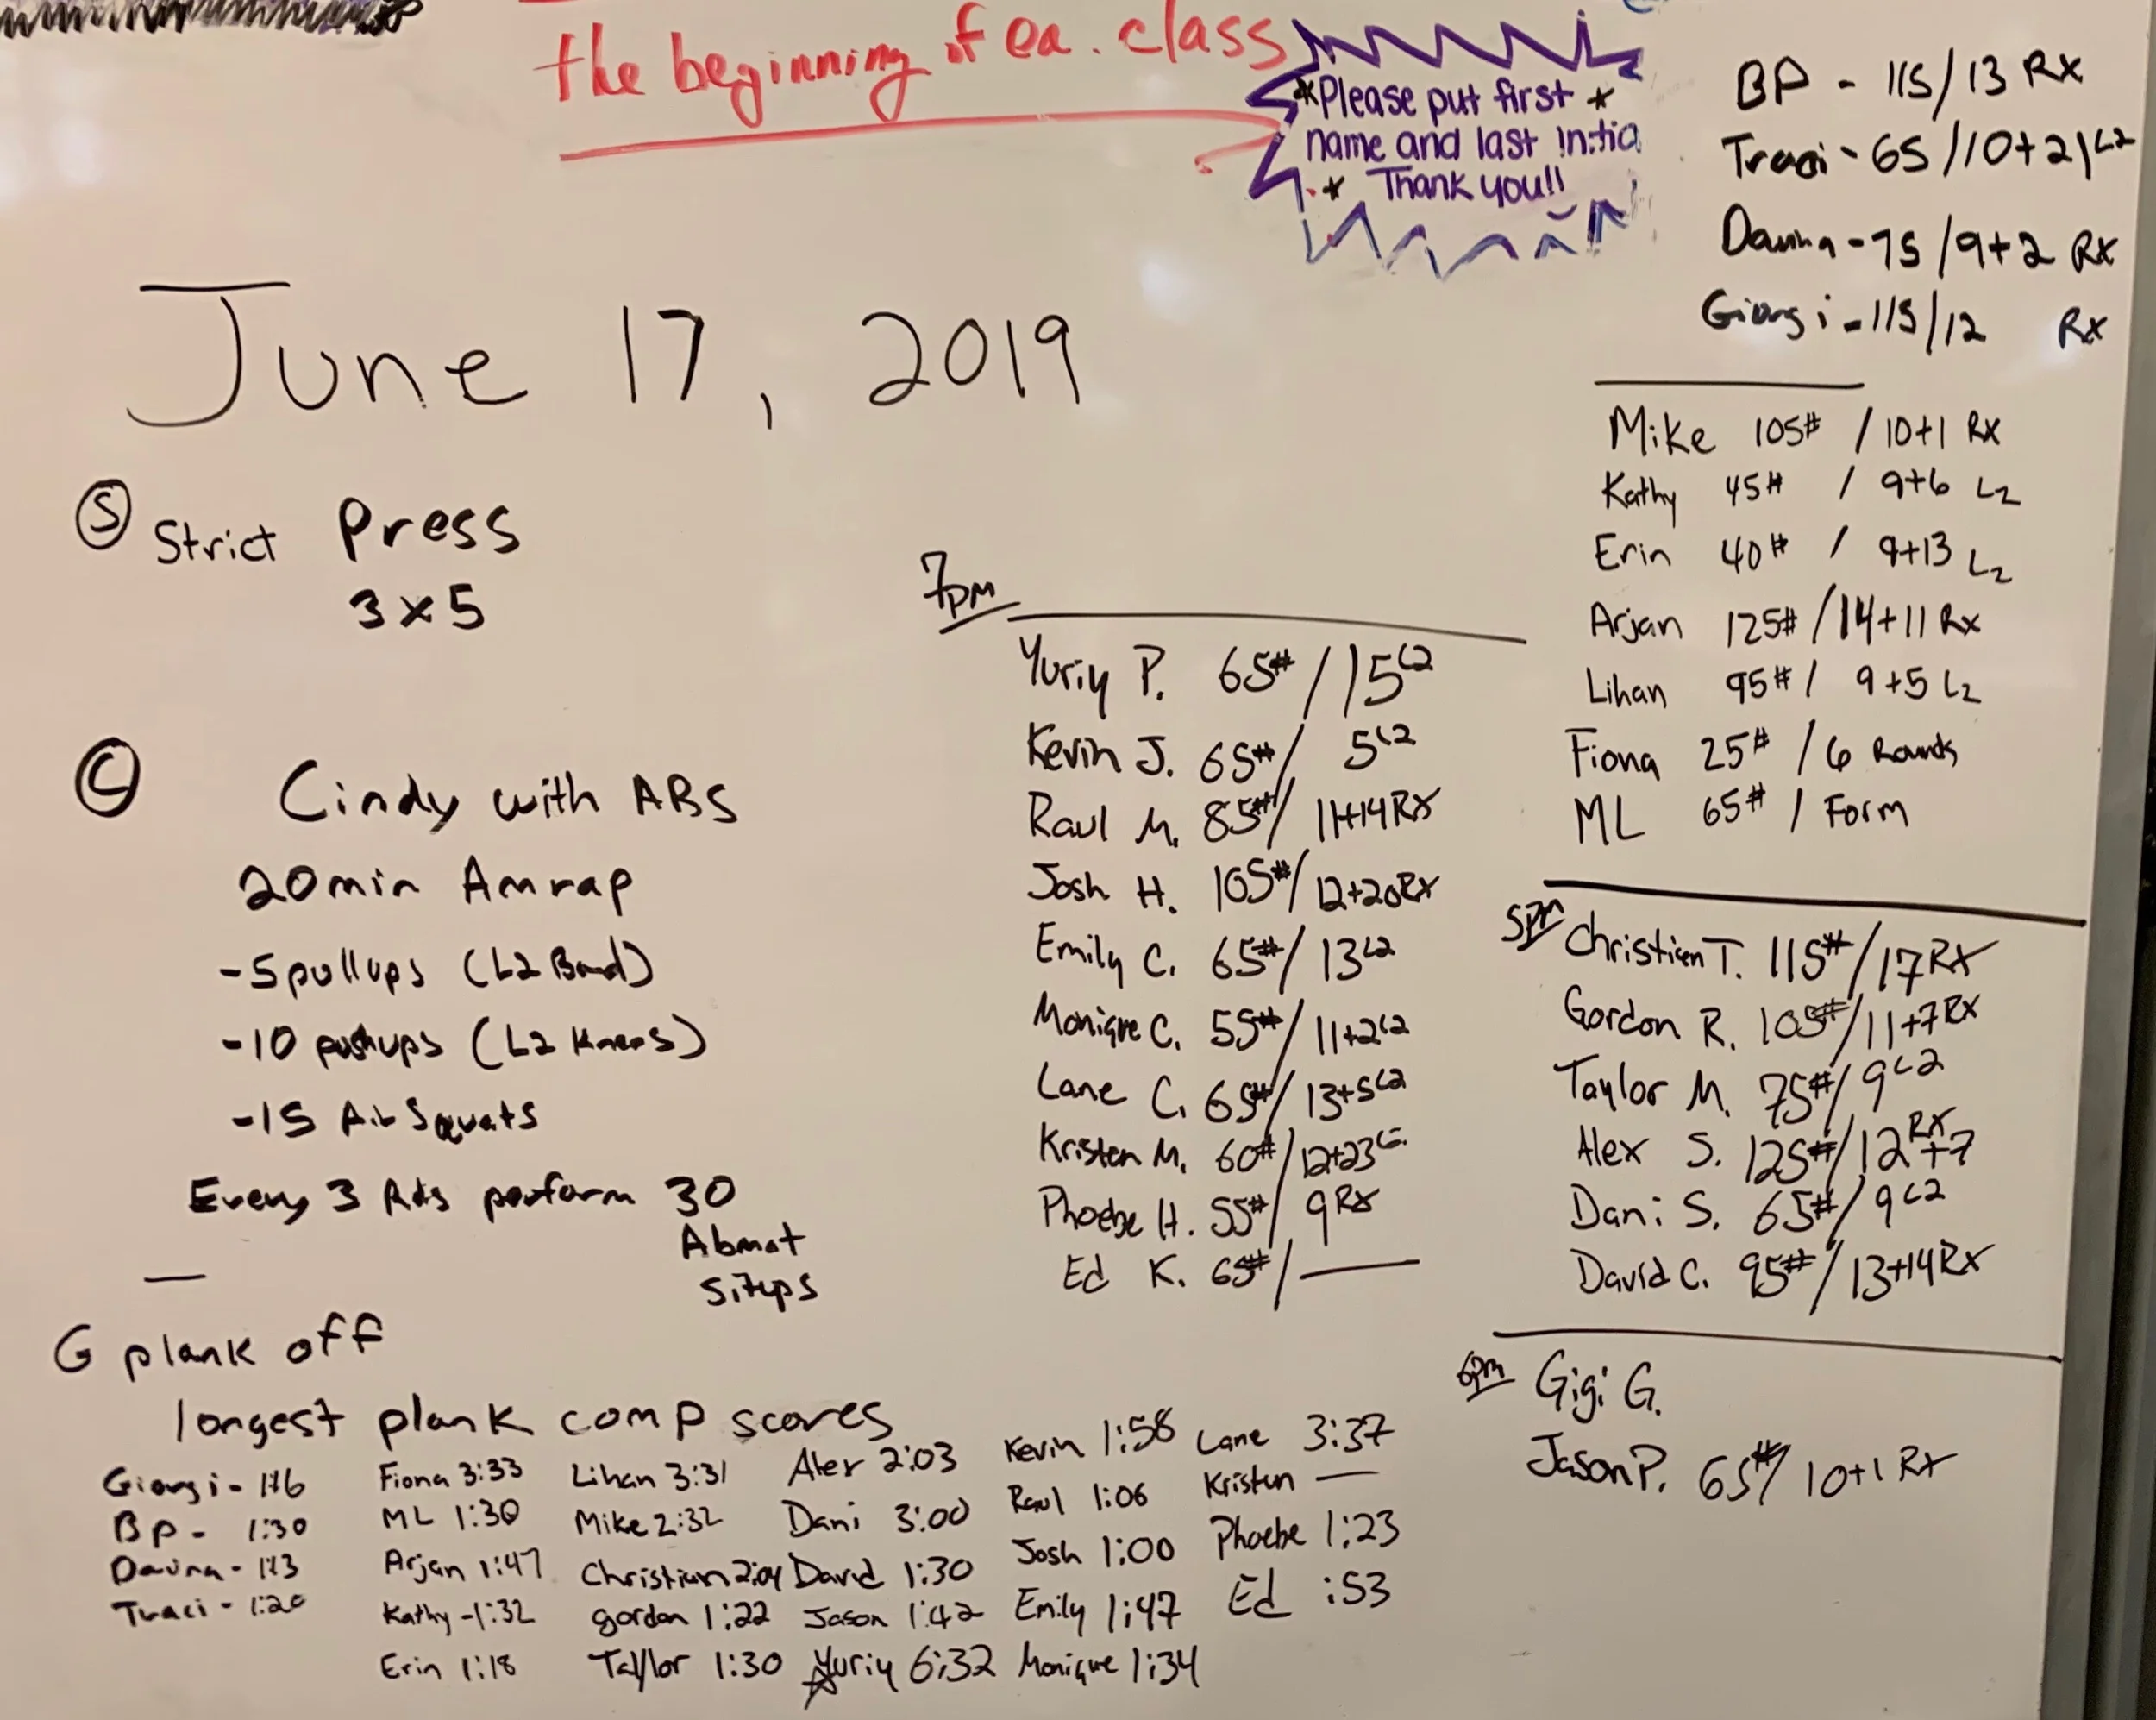 the beginning of ea. class
*Please put first *
name and last initia
* Thank you!!
June 17, 2019
Ⓢ Strict Press
3 x 5
Ⓒ Cindy with ABS
20min Amrap
-5 pullups (L2 Band)
-10 pushups (L2 Knees)
-15 Air Squats
Every 3 Rds perform 30
Abmat
situps
G plank off
longest plank comp scores
Giorgi - 1:16
BP - 1:30
Davina - 1:13
Traci - 1:20
Fiona 3:33
ML 1:30
Arjan 1:47
Kathy -1:32
Erin 1:18
Lihan 3:31
Mike 2:32
Christian 2:04
gordon 1:22
Taylor 1:30
Alex 2:03
Dani 3:00
David 1:30
Jason 1:42
☆Yuriy 6:32
Kevin 1:58
Raul 1:06
Josh 1:00
Emily 1:47
Monique 1:34
Lane 3:37
Kristen —
Phoebe 1:23
Ed :53
7pm
Yuriy P. 65# / 15 L2
Kevin J. 65# / 5 L2
Raul M. 85# / 11+14 RX
Josh H. 105# / 12+20 RX
Emily C. 65# / 13 L2
Monique C. 55# / 11+2 L2
Lane C. 65# / 13+5 L2
Kristen M. 60# / 12+23
Phoebe H. 55# / 9 RX
Ed K. 65# / —
BP - 115/13 RX
Traci - 65/10+21 L2
Davina - 75/9+2 RX
Giorgi - 115/12 RX
Mike 105# / 10+1 RX
Kathy 45# / 9+6 L2
Erin 40# / 9+13 L2
Arjan 125# / 14+11 RX
Lihan 95# / 9+5 L2
Fiona 25# / 6 Rounds
ML 65# / Form
5pm Christian T. 115# / 17 RX
Gordon R. 105# / 11+7 RX
Taylor M. 75# / 9 L2
Alex S. 125# / 12+7 RX
Dani S. 65# / 9 L2
David C. 95# / 13+14 RX
6pm Gigi G.
Jason P. 65# / 10+1 RX